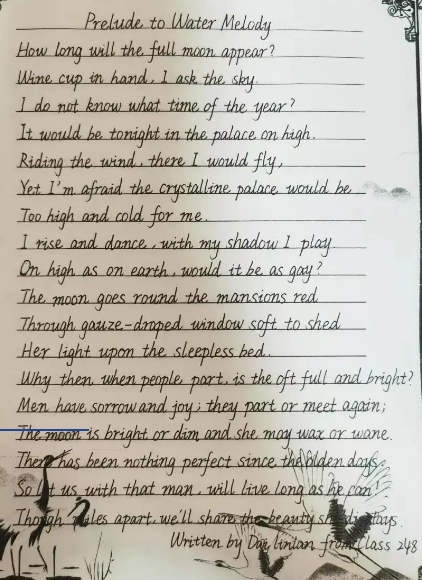 Prelude to Water Melody
How long will the full moon appear?
Wine cup in hand, I ask the sky.
I do not know what time of the year?
It would be tonight in the palace on high.
Riding the wind, there I would fly,
Yet I'm afraid the crystalline palace would be
Too high and cold for me.
I rise and dance, with my shadow I play
On high as on earth, would it be as gay?
The moon goes round the mansions red
Through gauze-draped window soft to shed
Her light upon the sleepless bed.
Why then when people part, is the oft full and bright?
Men have sorrow and joy; they part or meet again;
The moon is bright or dim and she may wax or wane.
There has been nothing perfect since the olden days.
So let us with that man, will live long as he can!
Though miles apart, we'll share the beauty she displays.
Written by Dai linlan from Class 248